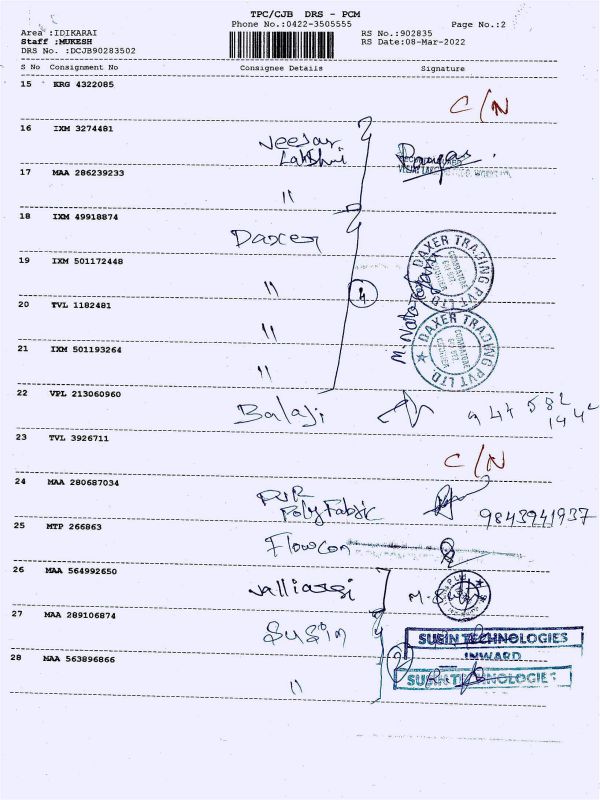 TPC/CJB DRS - PCM
Phone No.:0422-3505555 Page No.:2
Area :IDIKARAI RS No.:902835
Staff :MUKESH RS Date:08-Mar-2022
DRS No. :DCJB90283502
S No Consignment No Consignee Details Signature
15 KRG 4322085
C/N
16 IXM 3274481
Lakshmi
17 MAA 286239233
"
18 IXM 49918874
Daxer
19 IXM 501172448
" 4 DAXER TRADING PVT LTD
20 TVL 1182481
" DAXER TRADING PVT LTD
21 IXM 501193264
"
22 VPL 213060960
Balaji
23 TVL 3926711
C/N
24 MAA 280687034
PolyFabric 9843941937
25 MTP 266863
Flowcon
26 MAA 564992650
27 MAA 289106874
Susin SUSIN TECHNOLOGIES
INWARD
28 MAA 563896866 2 SUSIN TECHNOLOGIES
"